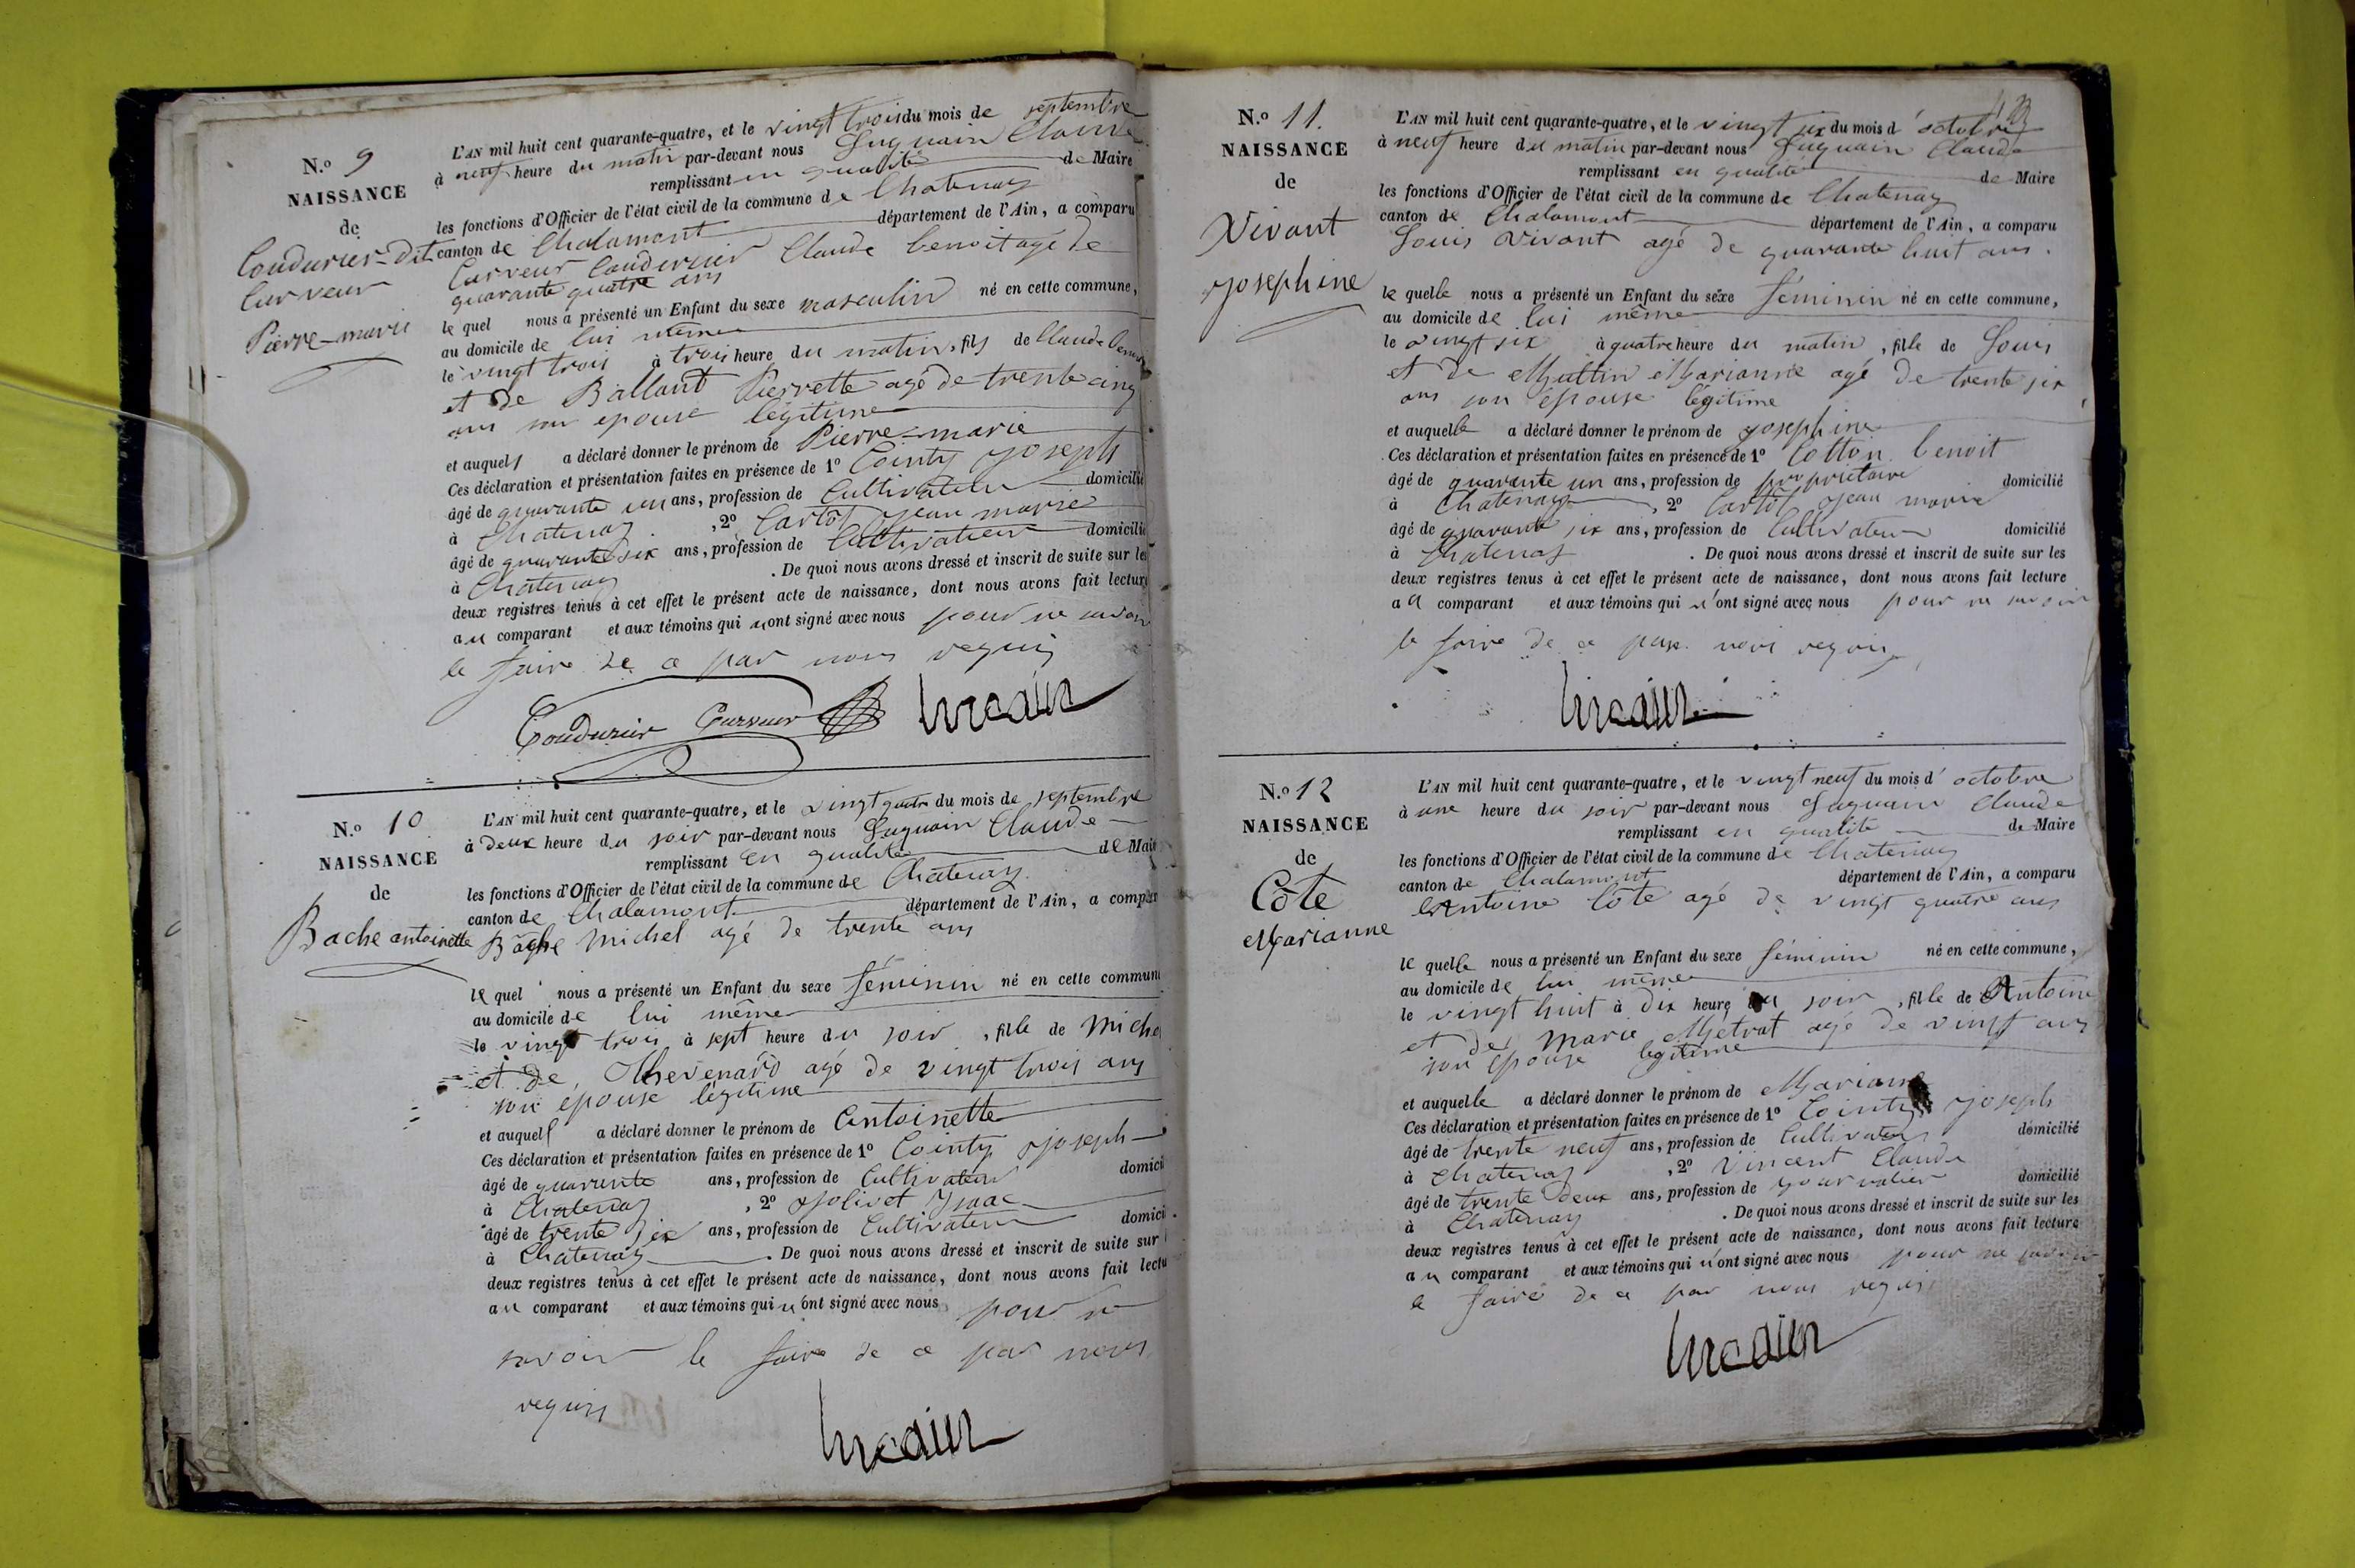 N.º 9
NAISSANCE
de
Coudurier-Dit
Curveur
Pierre-marie
L'AN mil huit cent quarante-quatre, et le vingt trois du mois de septembre
à neuf heure du matin par-devant nous Luquain Claude
remplissant en qualité de Maire
les fonctions d'Officier de l'état civil de la commune de Chatenay
canton de Chalamont département de l'Ain, a comparu
Curveur Coudurier Claude benoit agé de
quarante quatre ans
le quel nous a présenté un Enfant du sexe masculin né en cette commune,
au domicile de lui même
le vingt trois à trois heure du matin, fils de Claude benoit
et de Balland Pierrette agé de trente cinq
ans son epouse légitime
et auquel a déclaré donner le prénom de Pierre-marie
Ces déclaration et présentation faites en présence de 1º Cointy joseph
âgé de quarante un ans, profession de Cultivateur domicilié
à Chatenay, 2º Cartot jean marie
âgé de quarante six ans, profession de Cultivateur domicilié
à Chatenay. De quoi nous avons dressé et inscrit de suite sur les
deux registres tenus à cet effet le présent acte de naissance, dont nous avons fait lecture
au comparant et aux témoins qui n'ont signé avec nous pour ne savoir
le faire de ce par nous requis
Coudurier Curveur
N.º 10
NAISSANCE
de
Bache antoinette
L'AN mil huit cent quarante-quatre, et le vingt quatre du mois de septembre
à deux heure du soir par-devant nous Luquain Claude
remplissant en qualité de Mair
les fonctions d'Officier de l'état civil de la commune de Chatenay
canton de Chalamont département de l'Ain, a compar
Bache Michel agé de trente ans
le quel nous a présenté un Enfant du sexe féminin né en cette commune
au domicile de lui même
le vingt trois à sept heure du soir, fille de Michel
et de Thevenard agé de vingt trois ans
son epouse légitime
et auquel a déclaré donner le prénom de Antoinette
Ces déclaration et présentation faites en présence de 1º Cointy joseph
âgé de quarante ans, profession de Cultivateur domici
à Chatenay, 2º jolivet ysaac
âgé de trente six ans, profession de Cultivateur domici
à Chatenay. De quoi nous avons dressé et inscrit de suite sur
deux registres tenus à cet effet le présent acte de naissance, dont nous avons fait lectu
au comparant et aux témoins qui n'ont signé avec nous pour ne
savoir le faire de ce par nous
requis
N.º 11.
NAISSANCE
de
Vivant
josephine
L'AN mil huit cent quarante-quatre, et le vingt six du mois d'octobre
à neuf heure du matin par-devant nous Luquain Claude
remplissant en qualité de Maire
les fonctions d'Officier de l'état civil de la commune de Chatenay
canton de Chalamont département de l'Ain, a comparu
Louis Vivant agé de quarante huit ans.
le quelle nous a présenté un Enfant du sexe féminin né en cette commune,
au domicile de lui même
le vingt six à quatre heure du matin, fille de Louis
et de Muttin Marianne agé de trente six
ans son épouse légitime
et auquelle a déclaré donner le prénom de josephine
Ces déclaration et présentation faites en présence de 1º Cotton benoit
âgé de quarante un ans, profession de propriétaire domicilié
à Chatenay, 2º Cartot jean marie
âgé de quarante six ans, profession de Cultivateur domicilié
à Chatenay. De quoi nous avons dressé et inscrit de suite sur les
deux registres tenus à cet effet le présent acte de naissance, dont nous avons fait lecture
au comparant et aux témoins qui n'ont signé avec nous pour ne savoir
le faire de ce par nous requis
N.º 12
NAISSANCE
de
Côte
Marianne
L'AN mil huit cent quarante-quatre, et le vingt neuf du mois d'octobre
à une heure du soir par-devant nous Luquain Claude
remplissant en qualité de Maire
les fonctions d'Officier de l'état civil de la commune de Chatenay
canton de Chalamont département de l'Ain, a comparu
Antoine Côte agé de vingt quatre ans
le quelle nous a présenté un Enfant du sexe féminin né en cette commune,
au domicile de lui même
le vingt huit à dix heure du soir, fille de Antoine
et de Marie Metrat agé de vingt ans
son epouse légitime
et auquelle a déclaré donner le prénom de Marianne
Ces déclaration et présentation faites en présence de 1º Cointy joseph
âgé de trente neuf ans, profession de Cultivateur domicilié
à Chatenay, 2º Vincent Claude
âgé de trente deux ans, profession de journalier domicilié
à Chatenay. De quoi nous avons dressé et inscrit de suite sur les
deux registres tenus à cet effet le présent acte de naissance, dont nous avons fait lecture
au comparant et aux témoins qui n'ont signé avec nous pour ne savoir
le faire de ce par nous requis